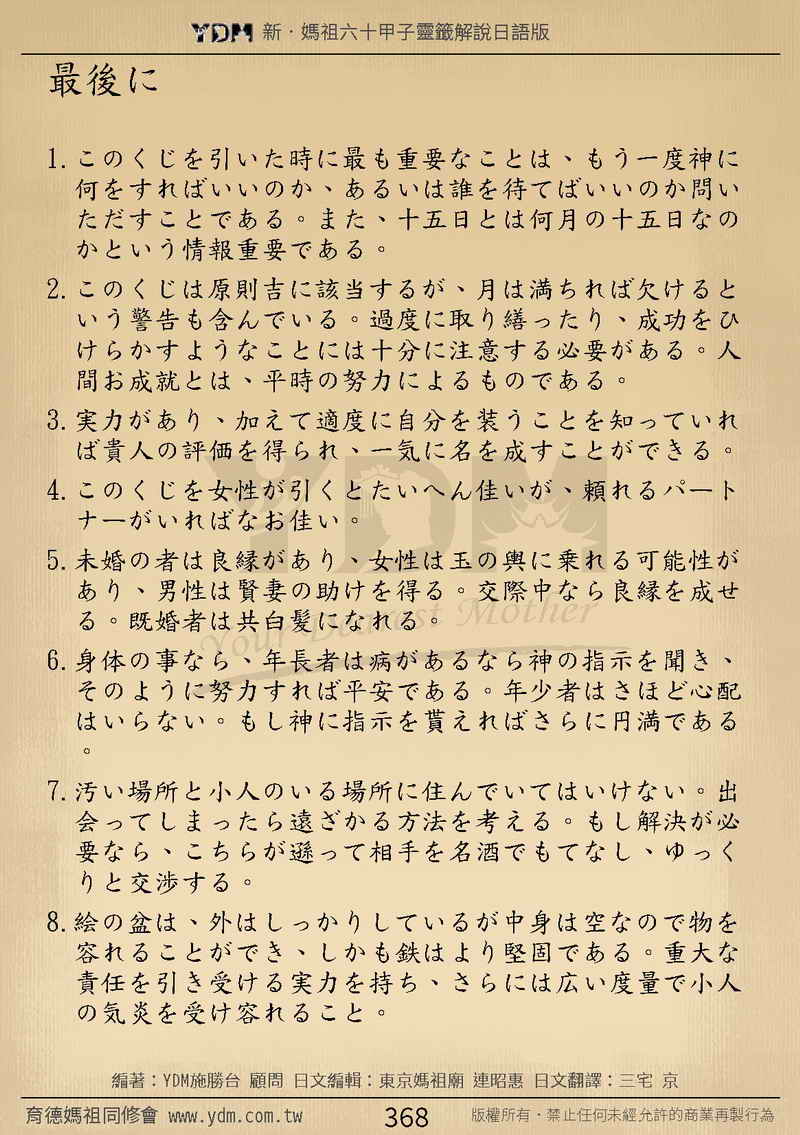 YDM 新・媽祖六十甲子靈籤解說日語版
最後に
1. このくじを引いた時に最も重要なことは、もう一度神に
何をすればいいのか、あるいは誰を待てばいいのか問い
ただすことである。また、十五日とは何月の十五日なの
かという情報重要である。
2. このくじは原則吉に該当するが、月は満ちれば欠けると
いう警告も含んでいる。過度に取り繕ったり、成功をひ
けらかすようなことには十分に注意する必要がある。人
間お成就とは、平時の努力によるものである。
3. 実力があり、加えて適度に自分を装うことを知っていれ
ば貴人の評価を得られ、一気に名を成すことができる。
4. このくじを女性が引くとたいへん佳いが、頼れるパート
ナーがいればなお佳い。
5. 未婚の者は良縁があり、女性は玉の輿に乗れる可能性が
あり、男性は賢妻の助けを得る。交際中なら良縁を成せ
る。既婚者は共白髪になれる。
6. 身体の事なら、年長者は病があるなら神の指示を聞き、
そのように努力すれば平安である。年少者はさほど心配
はいらない。もし神に指示を貰えればさらに円満である
。
7. 汚い場所と小人のいる場所に住んでいてはいけない。出
会ってしまったら遠ざかる方法を考える。もし解決が必
要なら、こちらが遜って相手を名酒でもてなし、ゆっく
りと交渉する。
8. 絵の盆は、外はしっかりしているが中身は空なので物を
容れることができ、しかも鉄はより堅固である。重大な
責任を引き受ける実力を持ち、さらには広い度量で小人
の気炎を受け容れること。
YDM
Your Dearest Mother
編著：YDM施勝台 顧問 日文編輯：東京媽祖廟 連昭惠 日文翻譯：三宅 京
育德媽祖同修會 www.ydm.com.tw 368 版權所有・禁止任何未經允許的商業再製行為